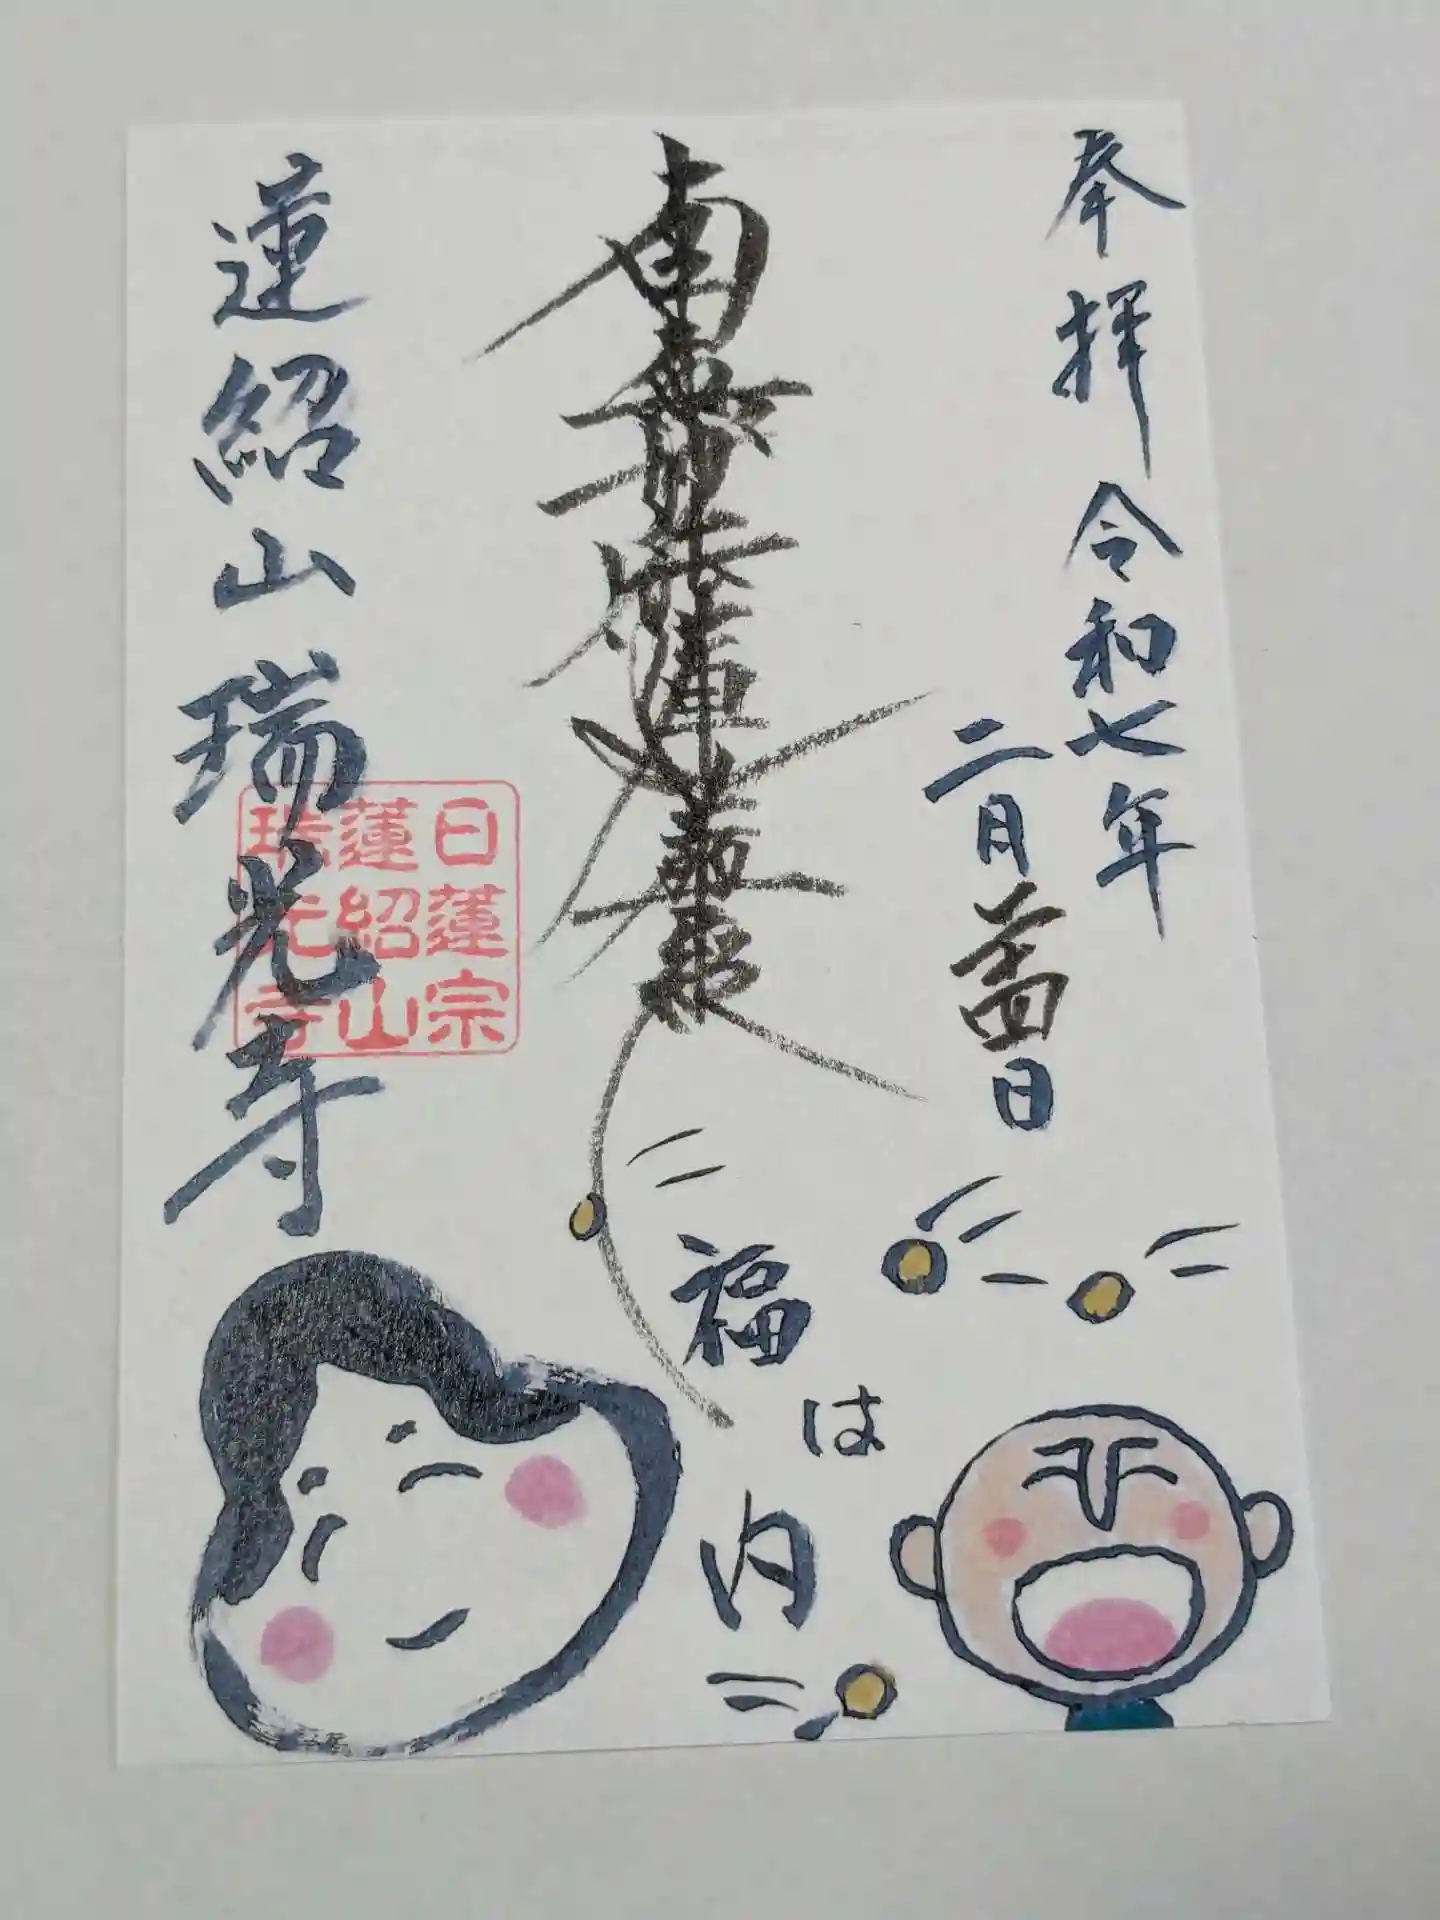 奉拝 令和七年
二月廿四日
南無妙法蓮華経
福は内
蓮紹山瑞光寺
日蓮宗
蓮紹山
瑞光寺